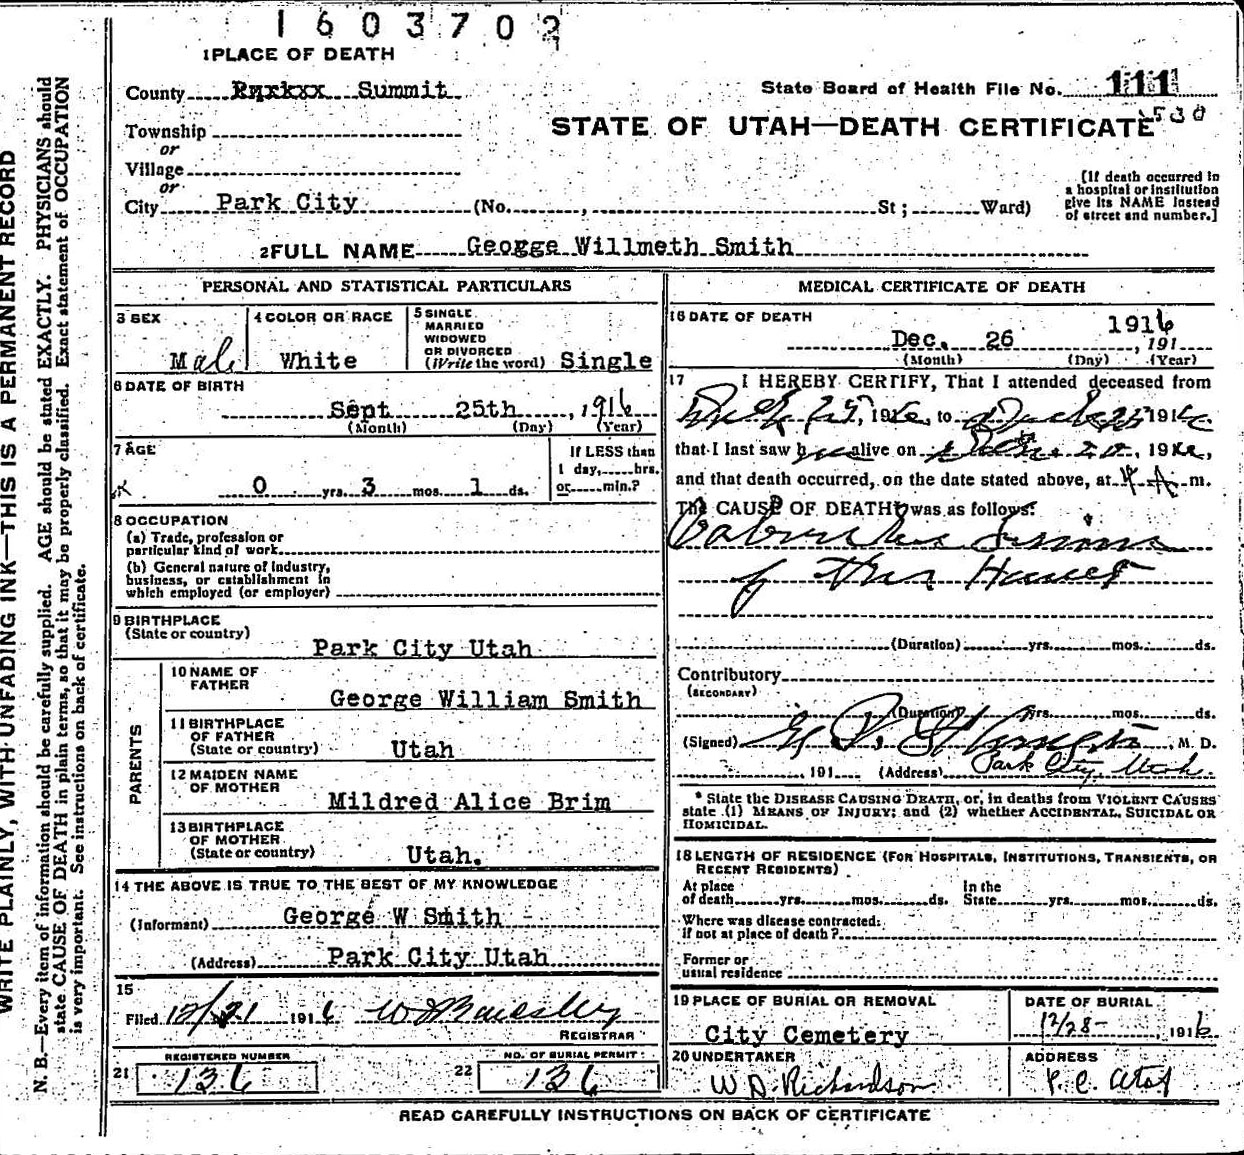 1603702
1 PLACE OF DEATH
County Summit
State Board of Health File No. 111
530
STATE OF UTAH—DEATH CERTIFICATE
Township
or
Village
or
City Park City (No. , St ; Ward)
[If death occurred in
a hospital or institution
give its NAME instead
of street and number.]
2 FULL NAME George Willmeth Smith
PERSONAL AND STATISTICAL PARTICULARS
3 SEX
Male
4 COLOR OR RACE
White
5 SINGLE
MARRIED
WIDOWED
OR DIVORCED
(Write the word) Single
6 DATE OF BIRTH
Sept 25th , 1916
(Month) (Day) (Year)
7 AGE
0 yrs. 3 mos. 1 ds.
If LESS than
1 day, hrs.
or min.?
8 OCCUPATION
(a) Trade, profession or
particular kind of work
(b) General nature of industry,
business, or establishment in
which employed (or employer)
9 BIRTHPLACE
(State or country)
Park City Utah
PARENTS
10 NAME OF
FATHER
George William Smith
11 BIRTHPLACE
OF FATHER
(State or country) Utah
12 MAIDEN NAME
OF MOTHER
Mildred Alice Brim
13 BIRTHPLACE
OF MOTHER
(State or country) Utah.
14 THE ABOVE IS TRUE TO THE BEST OF MY KNOWLEDGE
(Informant) George W Smith
(Address) Park City Utah
15
Filed 1916
REGISTRAR
21 REGISTERED NUMBER
136
22 NO. OF BURIAL PERMIT
136
MEDICAL CERTIFICATE OF DEATH
16 DATE OF DEATH
1916
Dec. 26 , 191
(Month) (Day) (Year)
17 I HEREBY CERTIFY, That I attended deceased from
, 1916, to 1916
that I last saw h alive on , 1916,
and that death occurred, on the date stated above, at 4 A m.
The CAUSE OF DEATH was as follows:
of the Heart
(Duration) yrs. mos. ds.
Contributory
(SECONDARY)
(Duration) yrs. mos. ds.
(Signed) M. D.
, 191 (Address) Park City, Utah.
* State the DISEASE CAUSING DEATH, or, in deaths from VIOLENT CAUSES
state (1) MEANS OF INJURY; and (2) whether ACCIDENTAL, SUICIDAL OR
HOMICIDAL.
18 LENGTH OF RESIDENCE (FOR HOSPITALS, INSTITUTIONS, TRANSIENTS, OR
RECENT RESIDENTS)
At place
of death yrs. mos. ds.
In the
State yrs. mos. ds.
Where was disease contracted,
if not at place of death?
Former or
usual residence
19 PLACE OF BURIAL OR REMOVAL
City Cemetery
DATE OF BURIAL
12/28- , 1916
20 UNDERTAKER
W D. Richardson
ADDRESS
P. C. Utah
READ CAREFULLY INSTRUCTIONS ON BACK OF CERTIFICATE
WRITE PLAINLY, WITH UNFADING INK—THIS IS A PERMANENT RECORD
N. B.—Every item of information should be carefully supplied. AGE should be stated EXACTLY. PHYSICIANS should
state CAUSE OF DEATH in plain terms, so that it may be properly classified. Exact statement of OCCUPATION
is very important. See instructions on back of certificate.